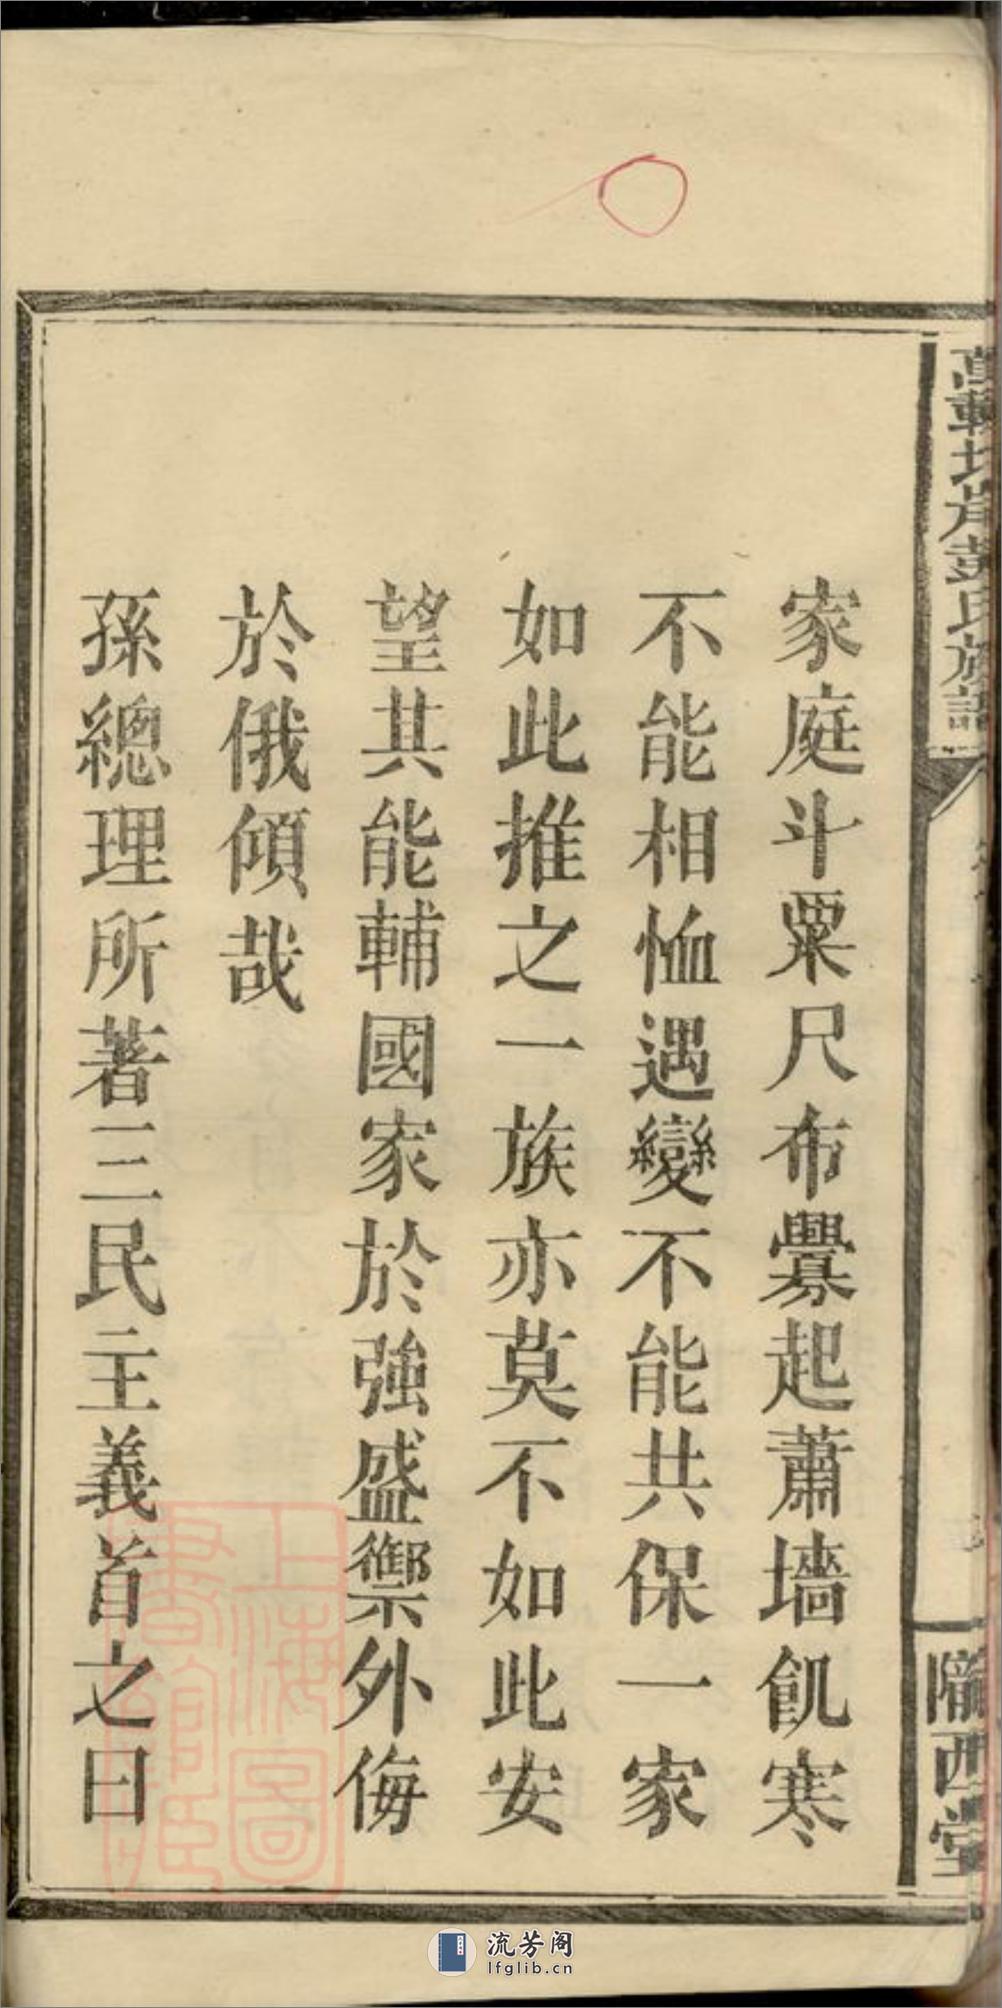 家庭斗粟尺布釁起蕭墻飢寒
不能相恤遇變不能共保一家
如此推之一族亦莫不如此安
望其能輔國家於強盛禦外侮
於俄傾哉
孫總理所著三民主義首之曰
隴西堂
上海圖
書館藏
流芳阁
lfglib.cn